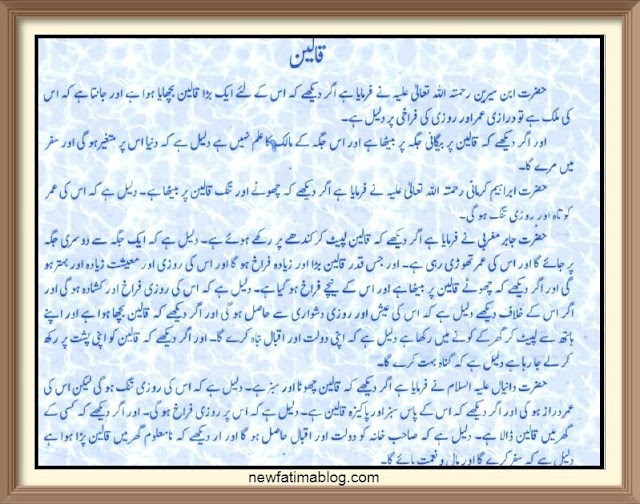 قالین
حضرت ابن سیرین رحمتہ اللہ تعالیٰ علیہ نے فرمایا ہے اگر دیکھے کہ اس کے لئے ایک بڑا قالین بچھایا ہوا ہے اور جانتا ہے کہ اس
کی ملک ہے تو درازی عمر اور روزی کی فراخی پر دلیل ہے۔
اور اگر دیکھے کہ قالین پر بیگانی جگہ پر بیٹھا ہے اور اس جگہ کے مالک کا علم نہیں ہے دلیل ہے کہ دنیا اس پر متغیر ہو گی اور سفر
میں مرے گا۔
حضرت ابراہیم کرمانی رحمتہ اللہ تعالیٰ علیہ نے فرمایا ہے اگر دیکھے کہ چھوٹے اور تنگ قالین پر بیٹھا ہے۔ دلیل ہے کہ اس کی عمر
کوتاہ اور روزی تنگ ہو گی۔
حضرت جابر مغربی نے فرمایا ہے اگر دیکھے کہ قالین لپیٹ کر کندھے پر رکھے ہوئے ہے۔ دلیل ہے کہ ایک جگہ سے دوسری جگہ
پر جائے گا اور اس کی عمر تھوڑی رہی ہے۔ اور جس قدر قالین بڑا اور زیادہ فراخ ہو گا اور اس کی روزی اور معیشت زیادہ اور بہتر ہو
گی اور اگر دیکھے کہ چھوٹے قالین پر بیٹھا ہے اور اس کے نیچے فراخ ہو گیا ہے۔ دلیل ہے کہ اس کی روزی فراخ اور کشادہ ہو گی اور
اگر اس کے خلاف دیکھے دلیل ہے کہ اس کی عیش اور روزی دشواری سے حاصل ہو گی اور اگر دیکھے کہ قالین بچھا ہوا ہے اور اپنے
ہاتھ سے لپیٹ کر گھر کے کونے میں رکھا ہے دلیل ہے کہ اپنی دولت اور اقبال تباہ کرے گا۔ اور اگر دیکھے کہ قالین کو اپنی پشت پر رکھ
کر لے جا رہا ہے دلیل ہے کہ گناہ بہت کرے گا۔
حضرت دانیال علیہ السلام نے فرمایا ہے اگر دیکھے کہ قالین چھوٹا اور سبز ہے۔ دلیل ہے کہ اس کی روزی تنگ ہو گی لیکن اس کی
عمر دراز ہو گی اور اگر دیکھے کہ اس کے پاس سبز اور پاکیزہ قالین ہے۔ دلیل ہے کہ اس پر روزی فراخ ہو گی۔ اور اگر دیکھے کہ کسی کے
گھر میں قالین ڈالا ہے۔ دلیل ہے کہ صاحب خانہ کو دولت اور اقبال حاصل ہو گا اور ار دیکھے کہ نامعلوم گھر میں قالین پڑا ہوا ہے
دلیل ہے کہ سفر کرے گا اور مال و نعمت پائے گا۔
newfatimablog.com